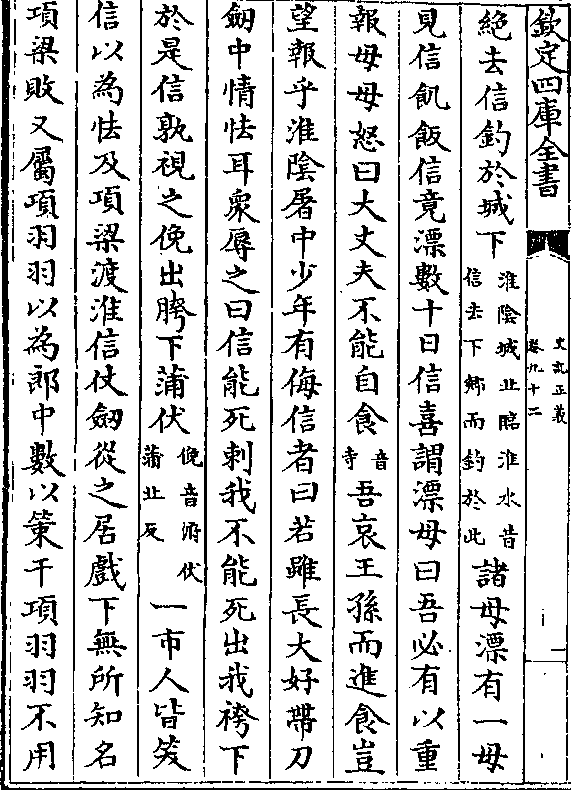 欽定四庫全書
史記正義
卷九十二
絶去信釣於城下淮隂城北臨淮水昔信去下鄉而釣於此諸母漂有一母
見信飢飯信竟漂數十日信喜謂漂母曰吾必有以重
報母母怒曰大丈夫不能自食音寺吾哀王孫而進食豈
望報乎淮隂屠中少年有侮信者曰若雖長大好帶刀
劒中情怯耳衆辱之曰信能死刺我不能死出我袴下
於是信孰視之俛出胯下蒲伏俛音俯伏蒲北反一市人皆笑
信以為怯及項梁渡淮信仗劒從之居戲下無所知名
項梁敗又屬項羽羽以為郎中數以策干項羽羽不用